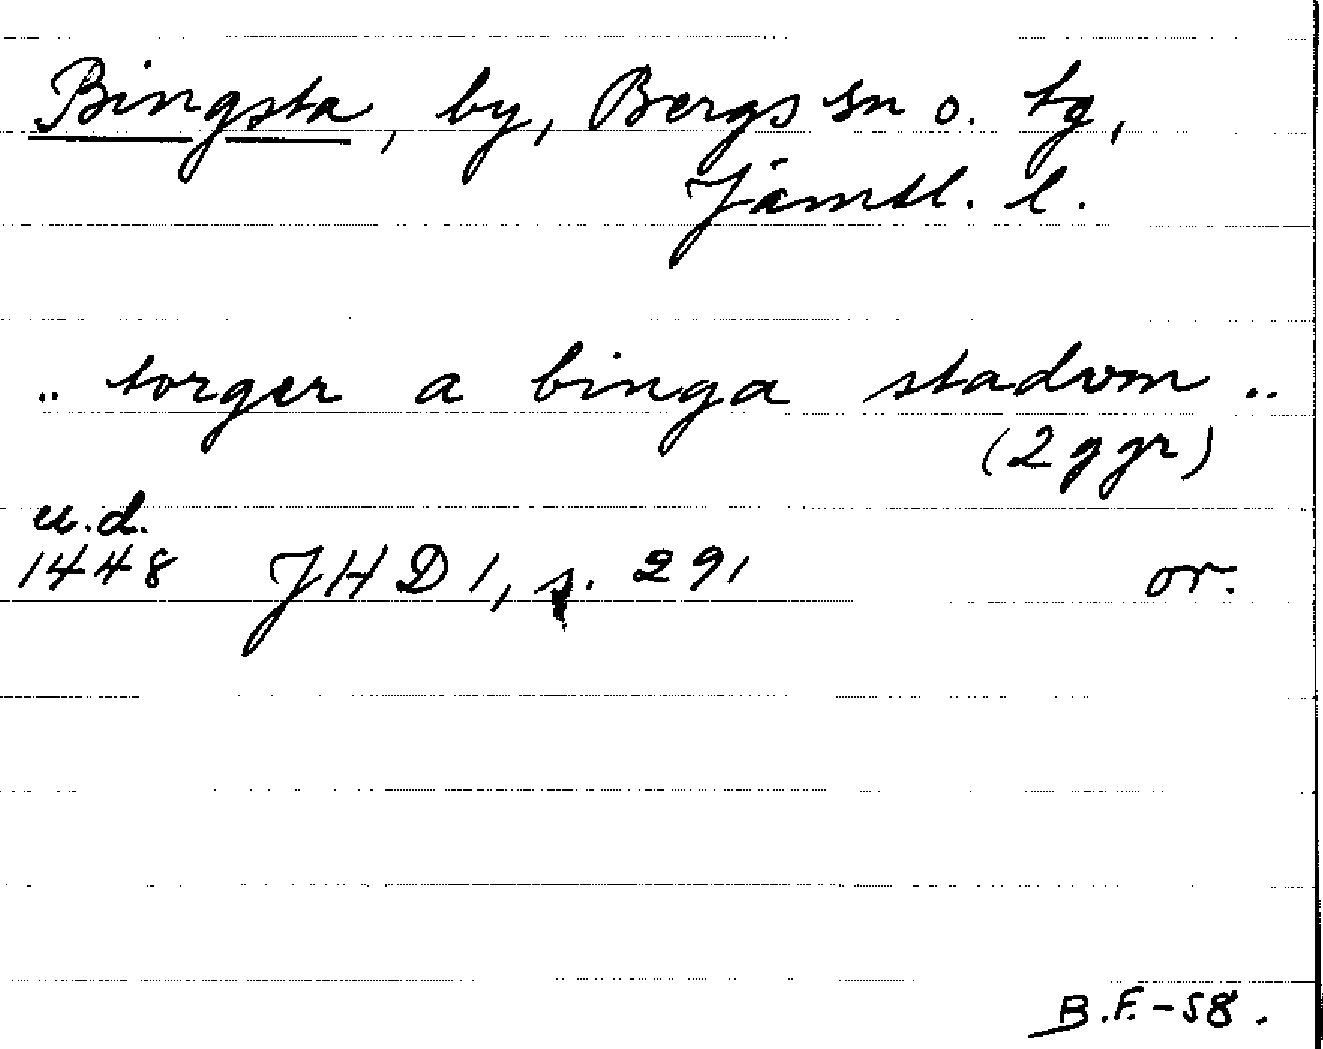 Bingsta, by, Bergs sn o. tg,
Jämtl. l.
.. torger a binga stadom ..
(2 ggr)
u.d.
1448 JHD 1, s. 291 or.
B.F. -58.